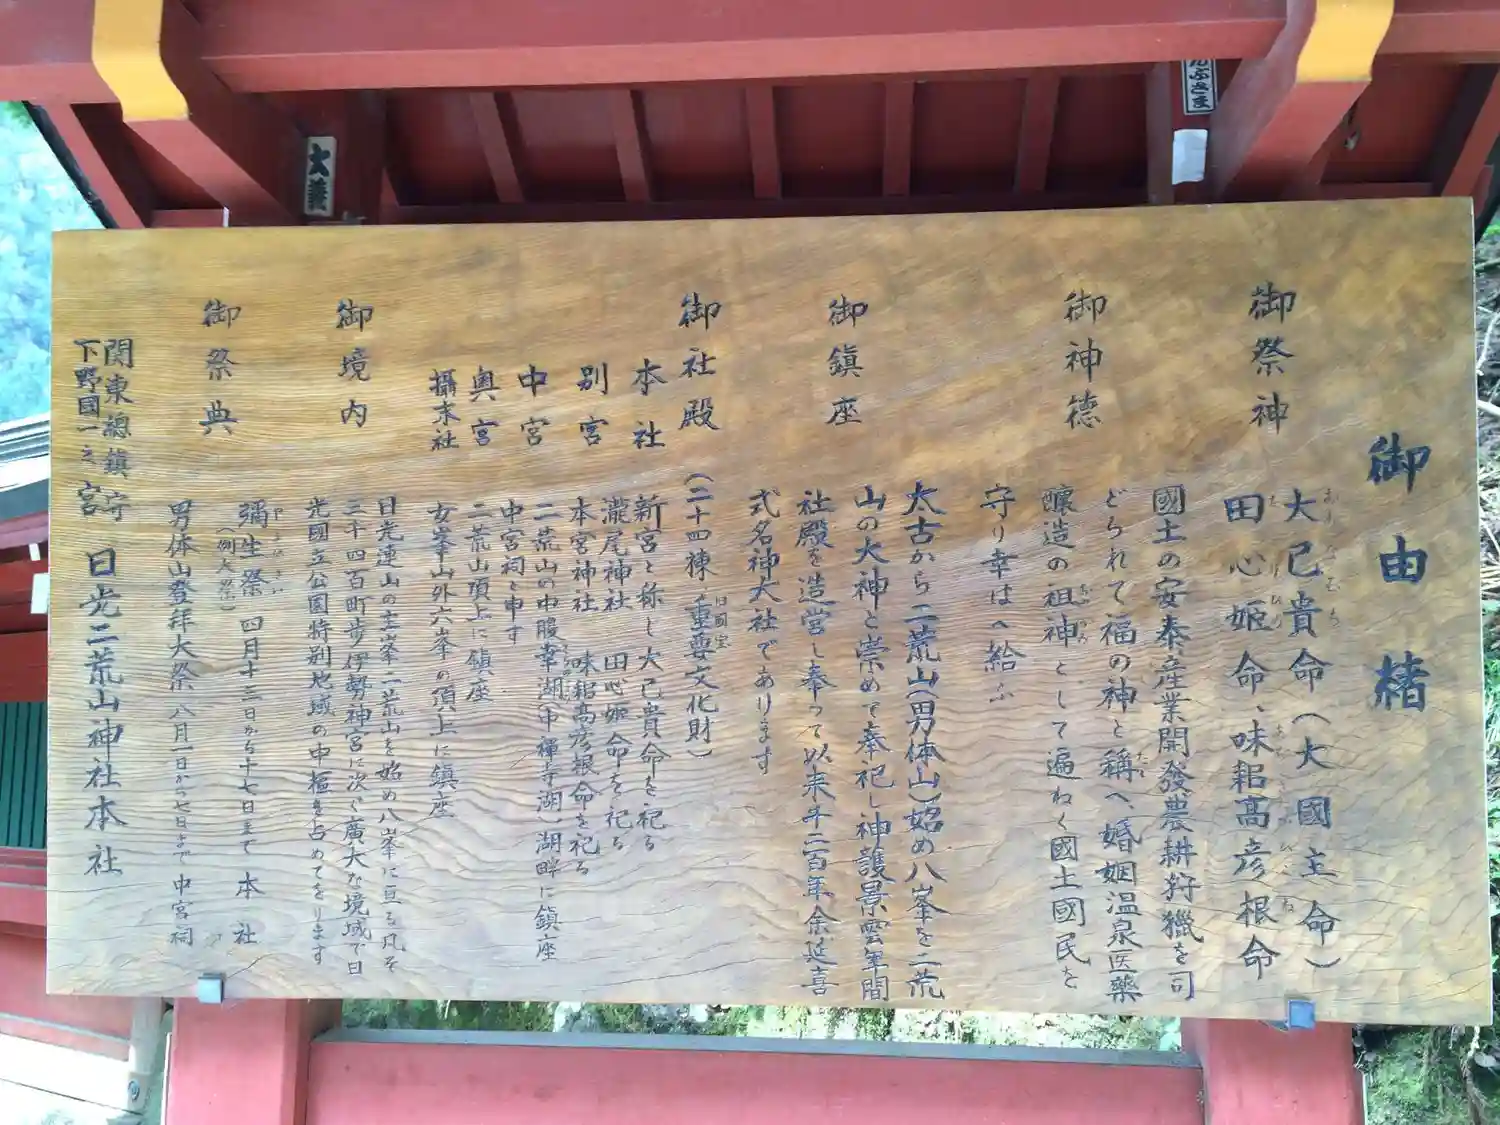 御由緒
御祭神
大己貴命(大國主命)
おおなむち
田心姫命、味耜高彦根命
たごりひめ
あじすきたかひこね
御神德
國土の安泰産業開發農耕狩獵を司
どられて福の神と稱へ婚姻温泉医藥
たた
釀造の祖神として遍ねく國土國民を
守り幸はへ給ふ
御鎮座
太古から二荒山(男体山)始め八峯を二荒
山の大神と崇めて奉祀し神護景雲年間
社殿を造営し奉って以来千二百年余延喜
式名神大社であります
御社殿
(二十四棟 重要文化財)
旧国宝
本社
新宮と称し大己貴命を祀る
別宮
瀧尾神社 田心姫命を祀る
本宮神社 味耜高彦根命を祀る
中宮
二荒山の中腹幸湖(中禅寺湖)湖畔に鎮座
中宮祠と申す
奥宮
二荒山頂上に鎮座
攝末社
女峯山外六峯の頂上に鎮座
御境内
日光連山の主峯二荒山を始め八峯に亘る凡そ
三千四百町歩伊勢神宮に次ぐ廣大な境域で日
光國立公園特別地域の中樞を占めております
御祭典
彌生祭 四月十三日から十七日まで 本社
やよいさい
(例大祭)
男体山登拝大祭 八月一日から七日まで 中宮祠
関東總鎮守
下野國一之宮
日光二荒山神社本社
大義
んぷさま